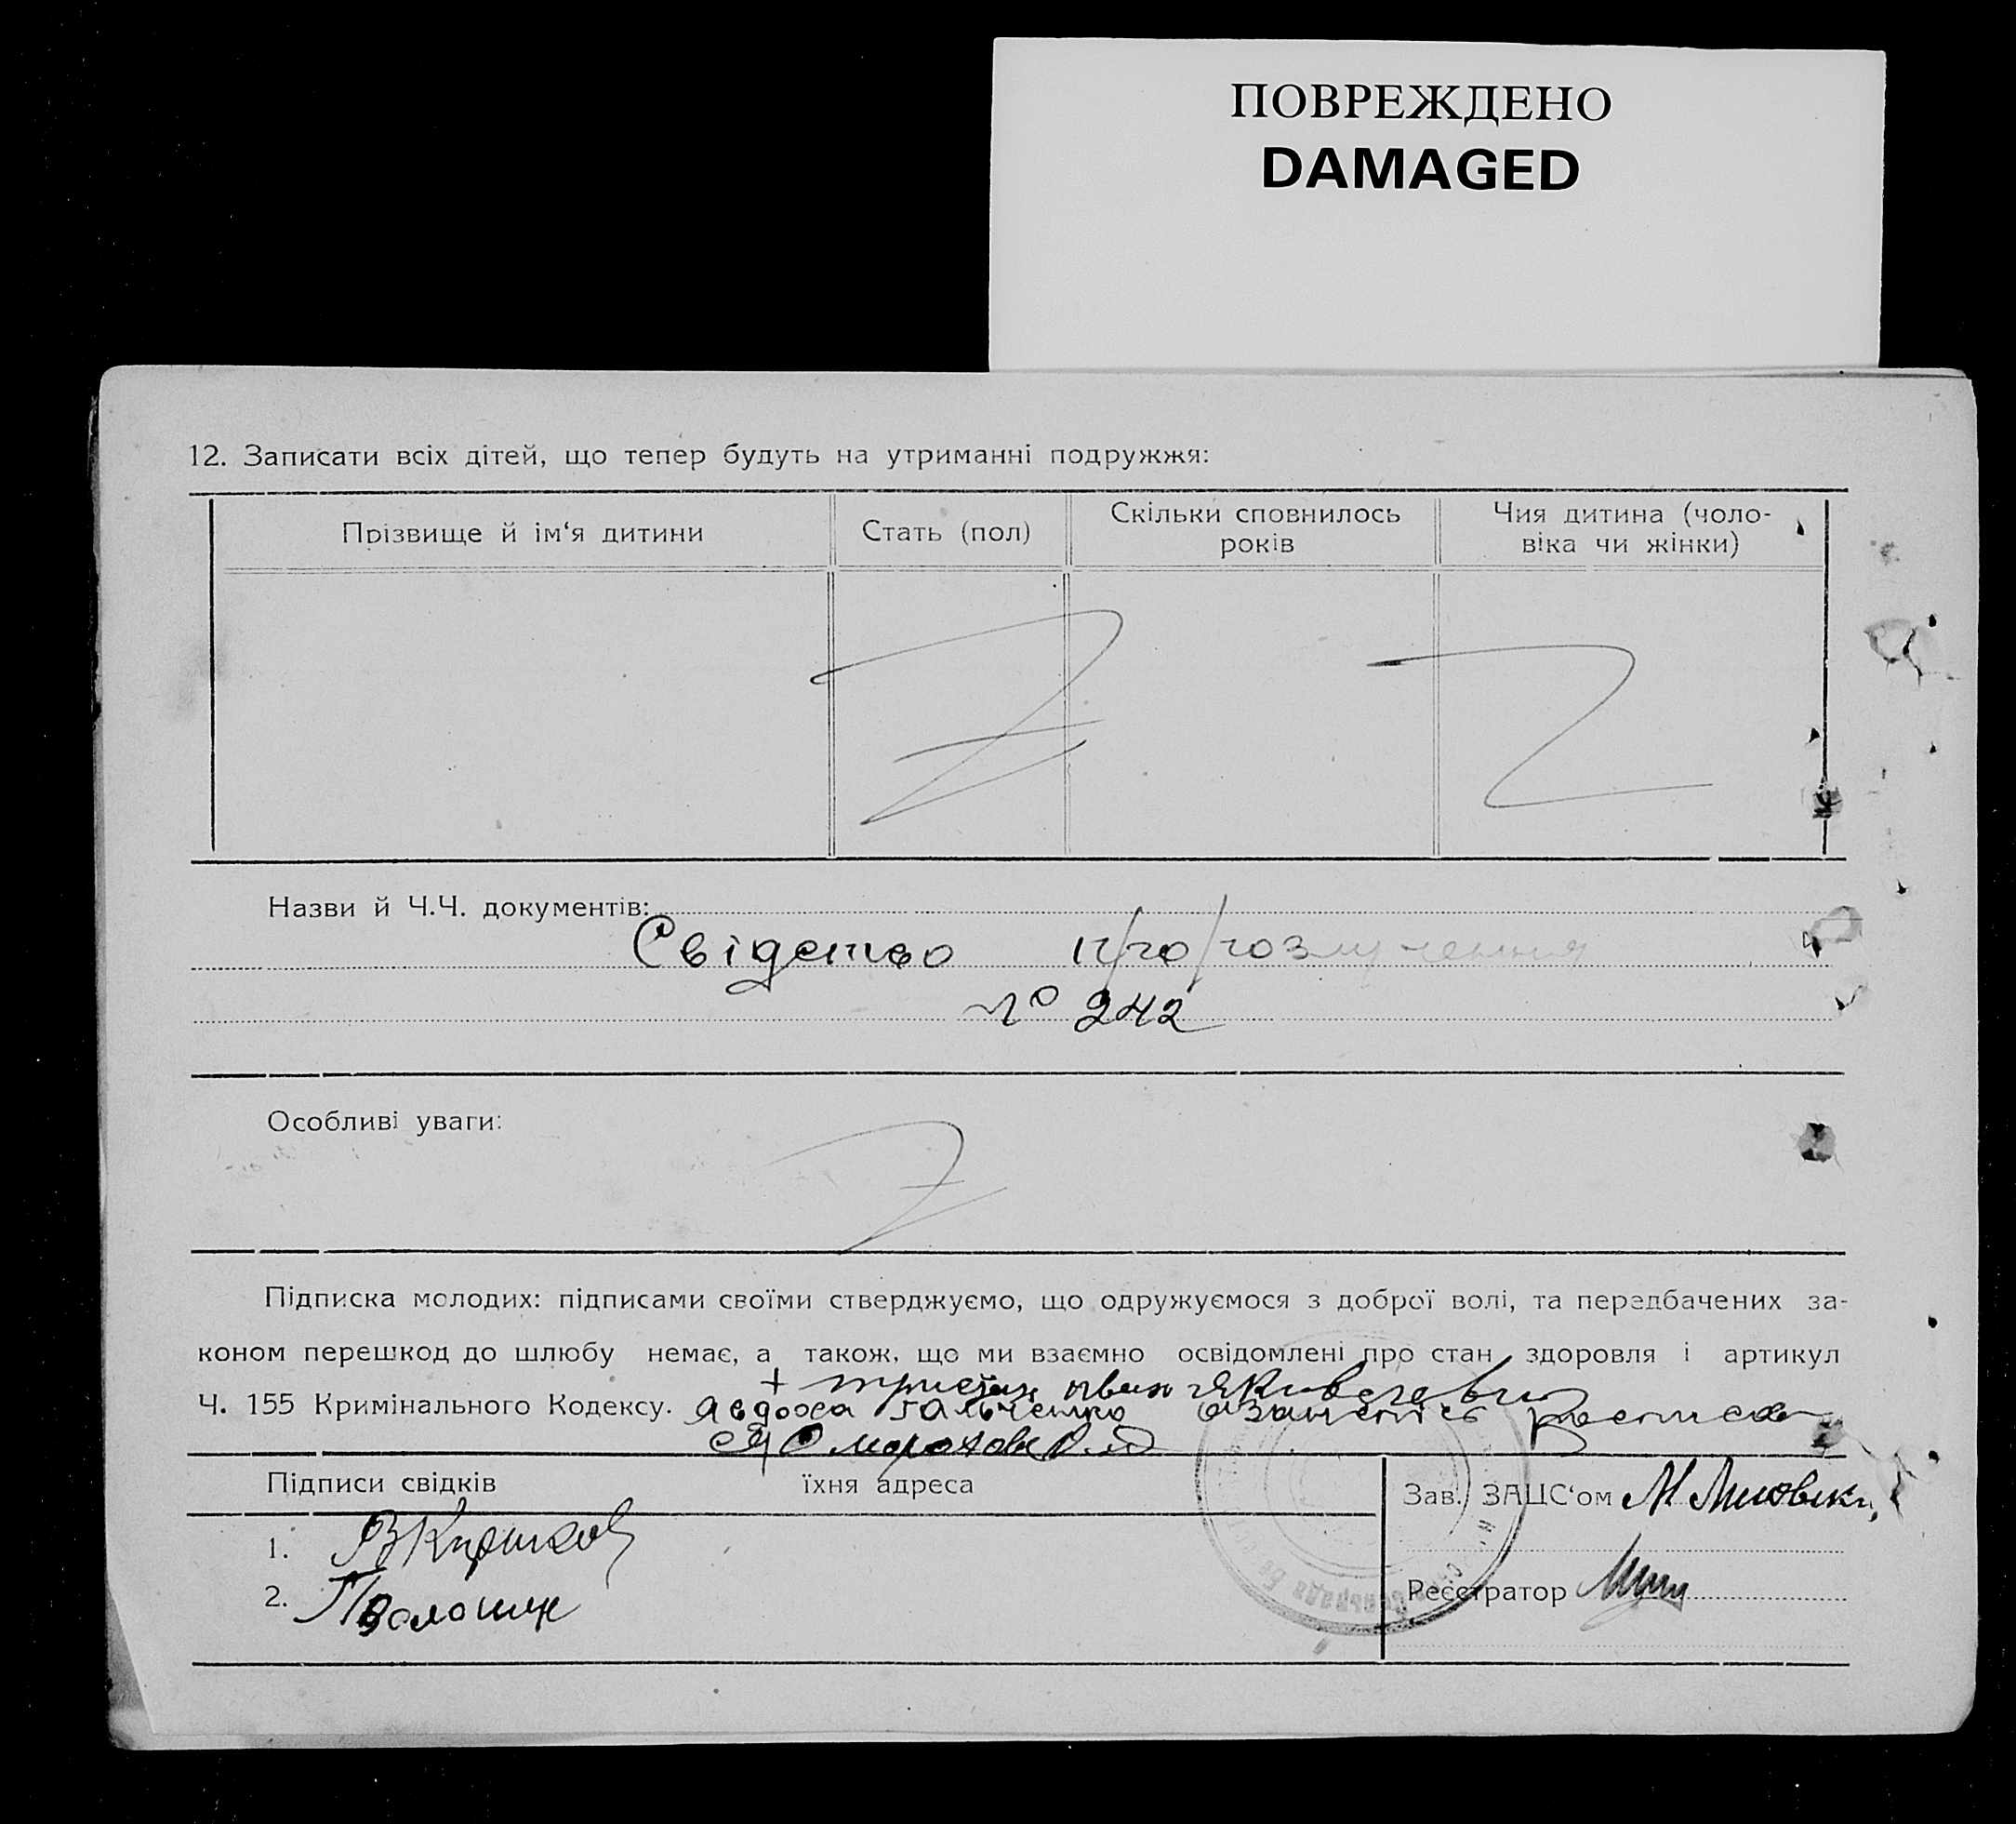 ПОВРЕЖДЕНО
DAMAGED
12. Записати всіх дітей, що тепер будуть на утриманні подружжя:
Прізвище й ім‘я дитини
Стать (пол)
Скільки сповнилось років
Чия дитина (чоло-
віка чи жінки)
Назви й Ч.Ч. документів:
Свідетво про розлучення
№ 242
Особливі уваги:
Підписка молодих: підписами своїми стверджуємо, що одружуємося з доброї волі, та передбачених за-
коном перешкод до шлюбу немає, а також, що ми взаємно освідомлені про стан здоровля і артикул
Ч. 155 Кримінального Кодексу.
Явдоха Гальченко
Підписи свідків
їхня адреса
Зав. ЗАЦС‘ом
1.
2. Волошин
Реєстратор